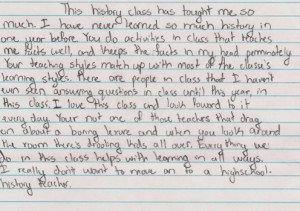 This history class has taught me so
much. I have never learned so much history in
one year before You do activities in class that teaches
me facts well, and keeps the facts in my head permanately
Your teaching styles match up with most of the classe's
learning styles. There are people in class that I haven't
even seen answering questions in class until this year, in
this class. I love this class and look foward to it
every day. Your not one of those teachers that drag
on about a boring lexure and when you look around
the room there's drooling kids all over. Everything we
do in this class helps with learning in all ways.
I really don't want to move on to a highschool
history teacher.